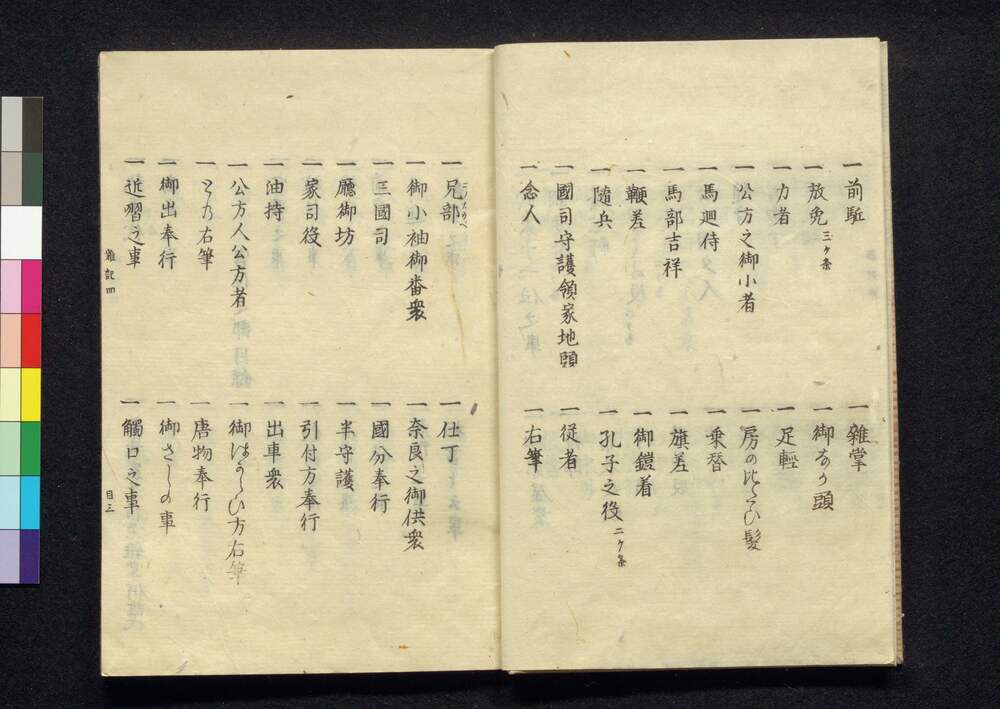 一前駈
一放免三ケ条
一力者
一公方之御小者
一馬廻侍
一馬部吉祥
一鞭差
一隨兵
一國司守護領家地頭
一念人
一雜掌
一御なり頭
一足輕
一房の
髪
一乗替
一旗差
一御鎧着
一孔子之役二ケ条
一従者
一右筆
一兄部
一御小袖御番衆
一三國司
一廳御坊
一家司役
一油持
一公方人公方者
一との右筆
一御出奉行
一近習之事
一仕丁
一奈良之御供衆
一國分奉行
一半守護
一引付方奉行
一出車衆
一御はからひ方右筆
一唐物奉行
一御さしの事
一觸口之事
雜記四
目三